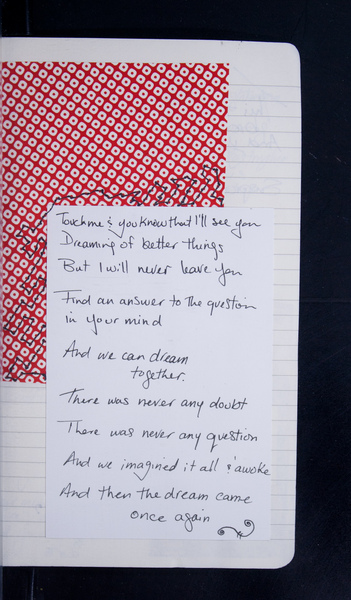 Touch me & you know that I'll see you
Dreaming of better things
But I will never leave you
Find an answer to the question
in your mind
And we can dream
together.
There was never any doubt
There was never any question
And we imagined it all & awoke
And then the dream came
once again